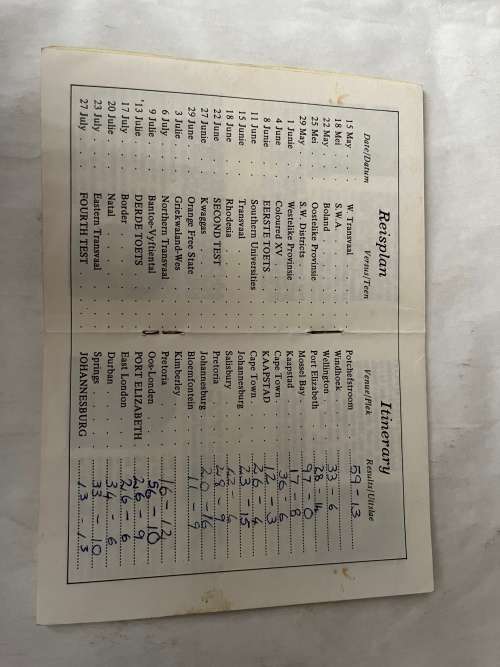 Reisplan Itinerary
Date/Datum Versus/Teen Venue/Plek Results/Uitslae
15 May . . W. Transvaal . . Potchefstroom . . 59 - 13
18 Mei . . S.W.A. . . Windhoek . . 
22 May . . Boland . . Wellington . . 33 - 6
25 Mei . . Oostelike Provinsie . . Port Elizabeth . . 28 - 14
29 May . . S.W. Districts . . Mossel Bay . . 97 - 0
1 Junie . . Westelike Provinsie . . Kaapstad . . 17 - 8
4 June . . Coloured XV . . Cape Town . . 36 - 6
8 Junie . . EERSTE TOETS . . KAAPSTAD . . 12 - 3
11 June . . Southern Universities . . Cape Town . . 26 - 4
15 Junie . . Transvaal . . Johannesburg . . 23 - 15
18 June . . Rhodesia . . Salisbury . . 42 - 6
22 June . . SECOND TEST . . Pretoria . . 28 - 9
27 Junie . . Kwaggas . . Johannesburg . . 20 - 16
29 June . . Orange Free State . . Bloemfontein . . 11 - 9
3 Julie . . Griekwaland-Wes . . Kimberley . .
6 July . . Northern Transvaal . . Pretoria . . 16 - 12
9 Julie . . Bantoe-Vyftiental . . Oos-Londen . . 56 - 10
13 Julie . . DERDE TOETS . . PORT ELIZABETH . . 26 - 9
17 July . . Border . . East London . . 26 - 6
20 Julie . . Natal . . Durban . . 34 - 6
23 July . . Eastern Transvaal . . Springs . . 33 - 10
27 July . . FOURTH TEST . . JOHANNESBURG . . 13 - 13